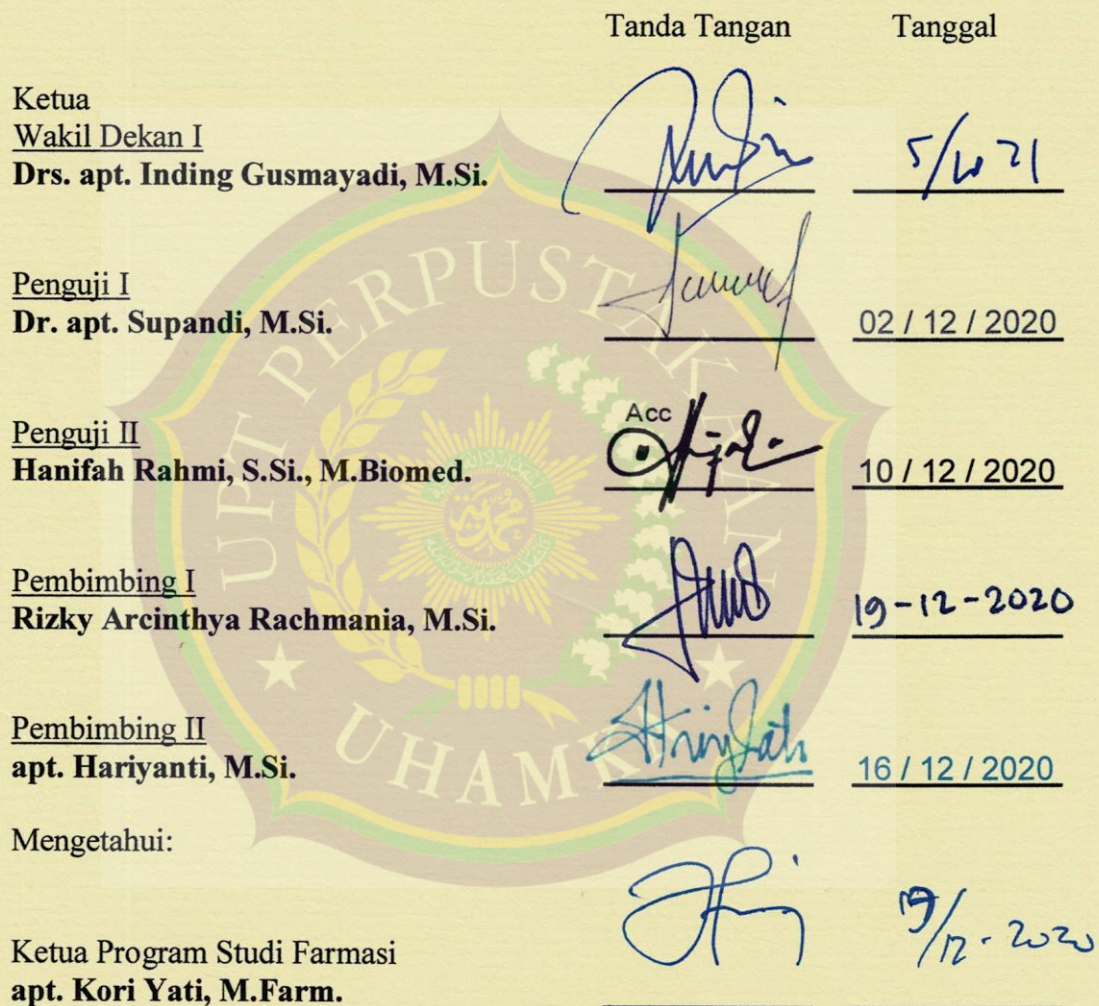 Tanda Tangan Tanggal
Ketua
Wakil Dekan I
Drs. apt. Inding Gusmayadi, M.Si.
Penguji I
Dr. apt. Supandi, M.Si. 02 / 12 / 2020
Acc
Penguji II
Hanifah Rahmi, S.Si., M.Biomed. 10 / 12 / 2020
Pembimbing I
Rizky Arcinthya Rachmania, M.Si. 19-12-2020
Pembimbing II
apt. Hariyanti, M.Si. 16 / 12 / 2020
Mengetahui:
Ketua Program Studi Farmasi
apt. Kori Yati, M.Farm.
UPT PERPUSTAKAAN
UHAMKA